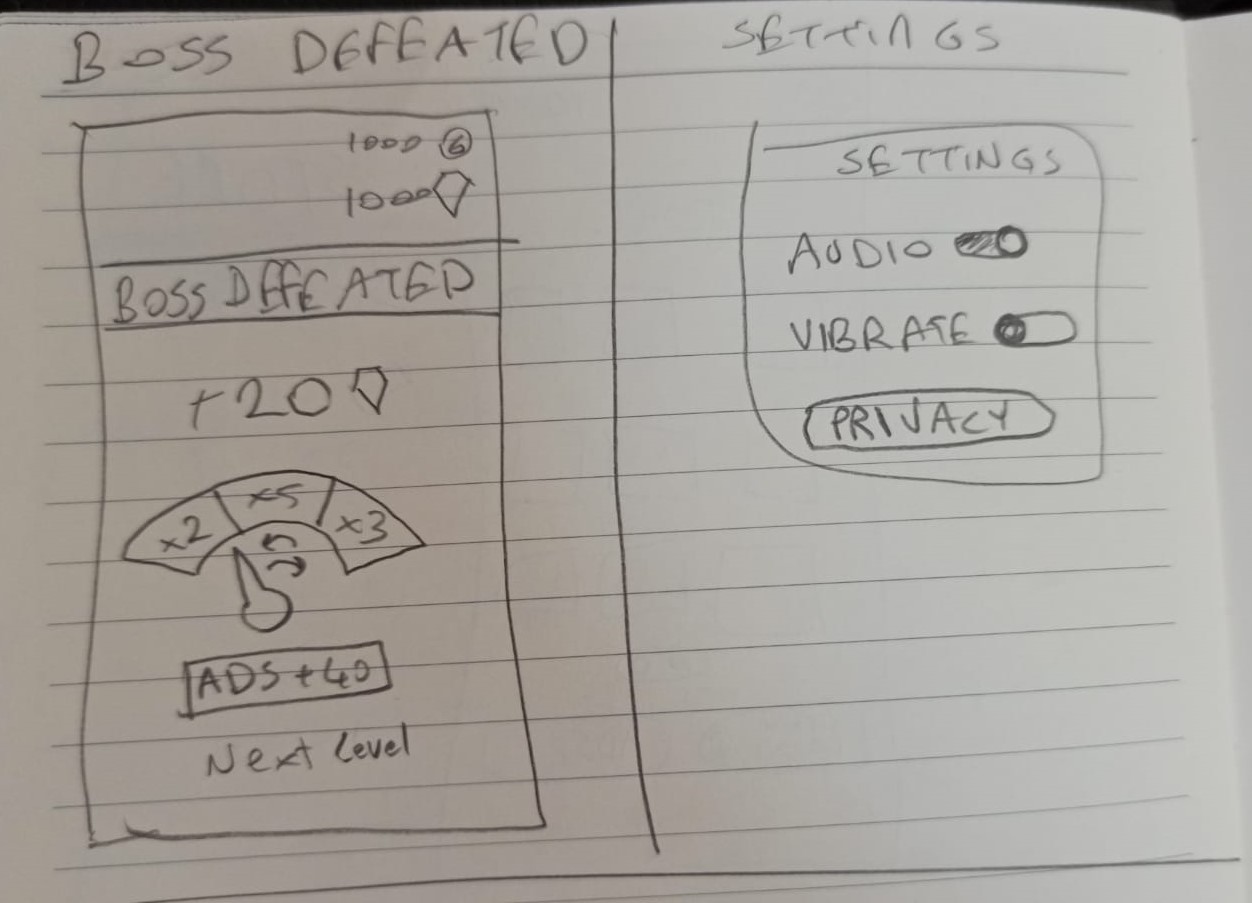 BOSS DEFEATED
1000 G
1000
BOSS DEFEATED
+20
x2 x5 x3
ADS +40
Next Level
SETTINGS
SETTINGS
AUDIO
VIBRATE
PRIVACY